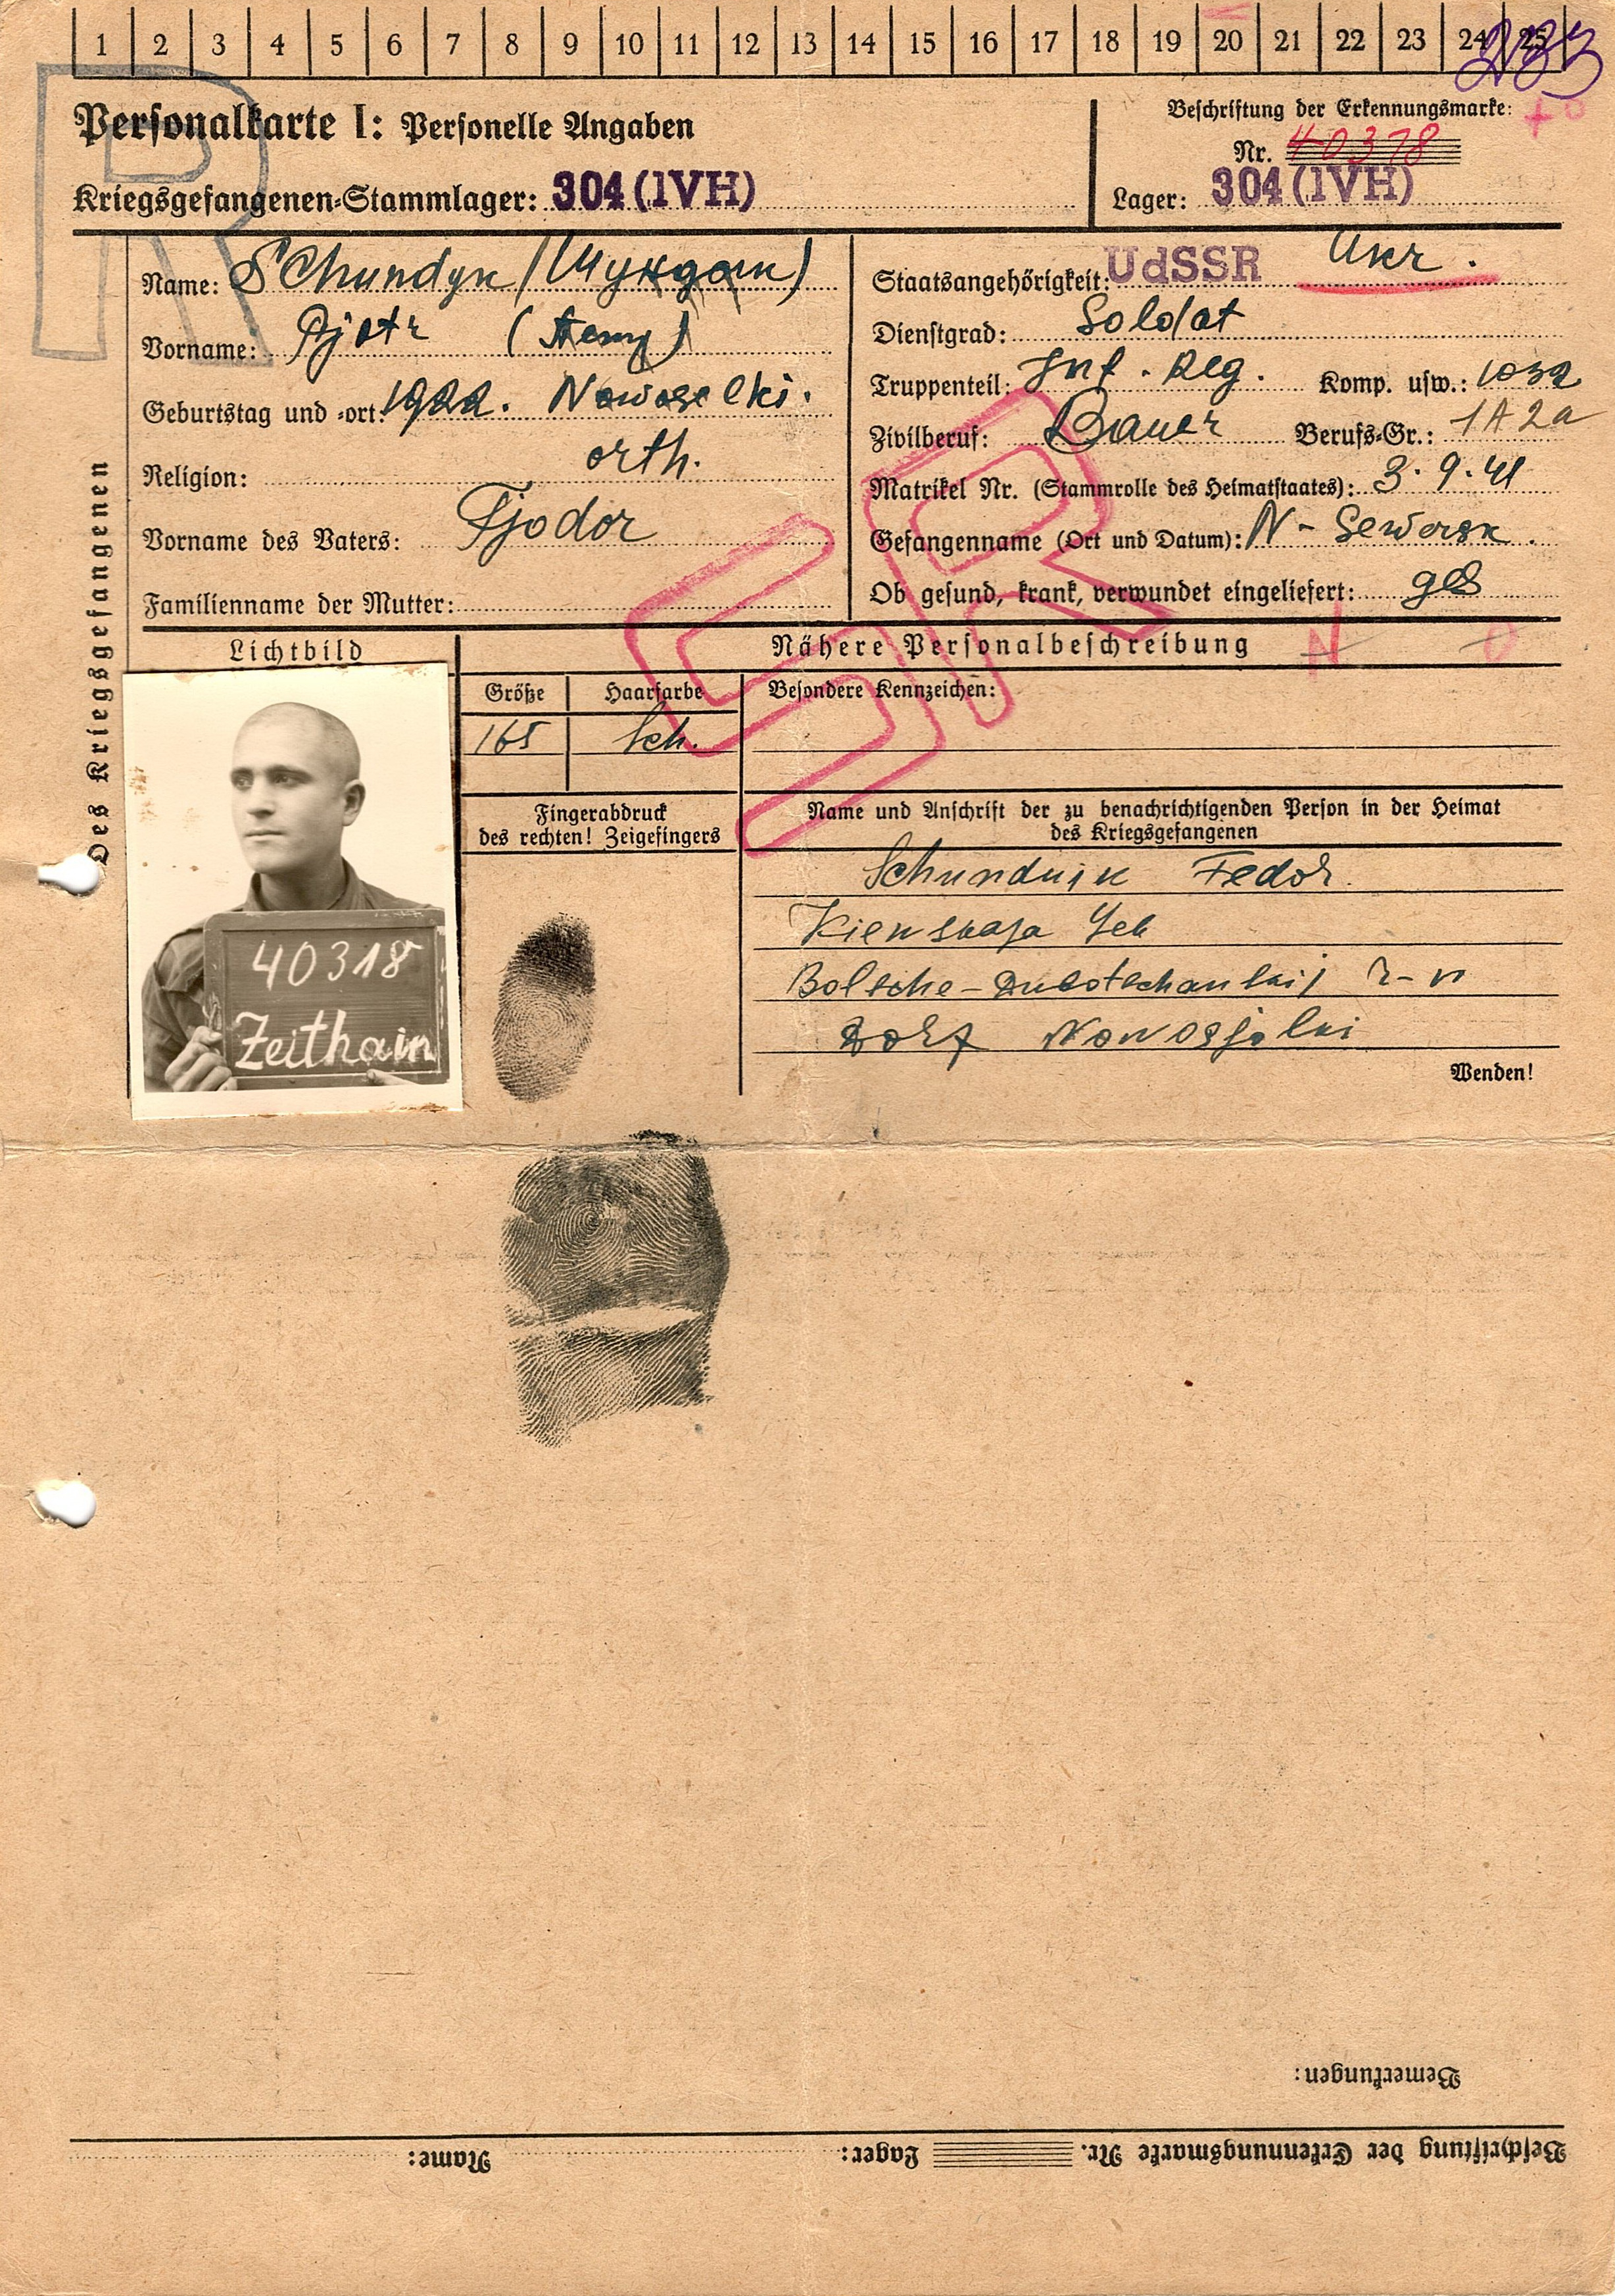 1 2 3 4 5 6 7 8 9 10 11 12 13 14 15 16 17 18 19 20 21 22 23 24 25
233
Personalkarte I: Personelle Angaben
Beschriftung der Erkennungsmarke:
Nr. 40318
Kriegsgefangenen-Stammlager: 304 (IVH)
Lager: 304 (IVH)
R
Des Kriegsgefangenen
Name: Schundyk
Vorname: Pjotr
Geburtstag und -ort: 1922. Nowoselki.
Religion: orth.
Vorname des Vaters: Fjodor
Familienname der Mutter:
Staatsangehörigkeit: UdSSR Ukr.
Dienstgrad: Soldat
Truppenteil: Inf. Reg. Komp. usw.: 1032
Zivilberuf: Bauer Berufs-Gr.: 1A2a
Matrikel Nr. (Stammrolle des Heimatstaates): 3.9.41
Gefangenname (Ort und Datum): N-Sewersk.
Ob gesund, krank, verwundet eingeliefert: ges
SR
Lichtbild
Nähere Personalbeschreibung
N
Größe Haarfarbe Besondere Kennzeichen:
165 Sch.
40318
Zeithain
Fingerabdruck
des rechten! Zeigefingers
Name und Anschrift der zu benachrichtigenden Person in der Heimat
des Kriegsgefangenen
Schundyik Fedor.
Kiewskaja Geb
Dorf Nowosjolki
Wenden!
Bemerkungen:
Beschriftung der Erkennungsmarke Nr. Lager: Name: